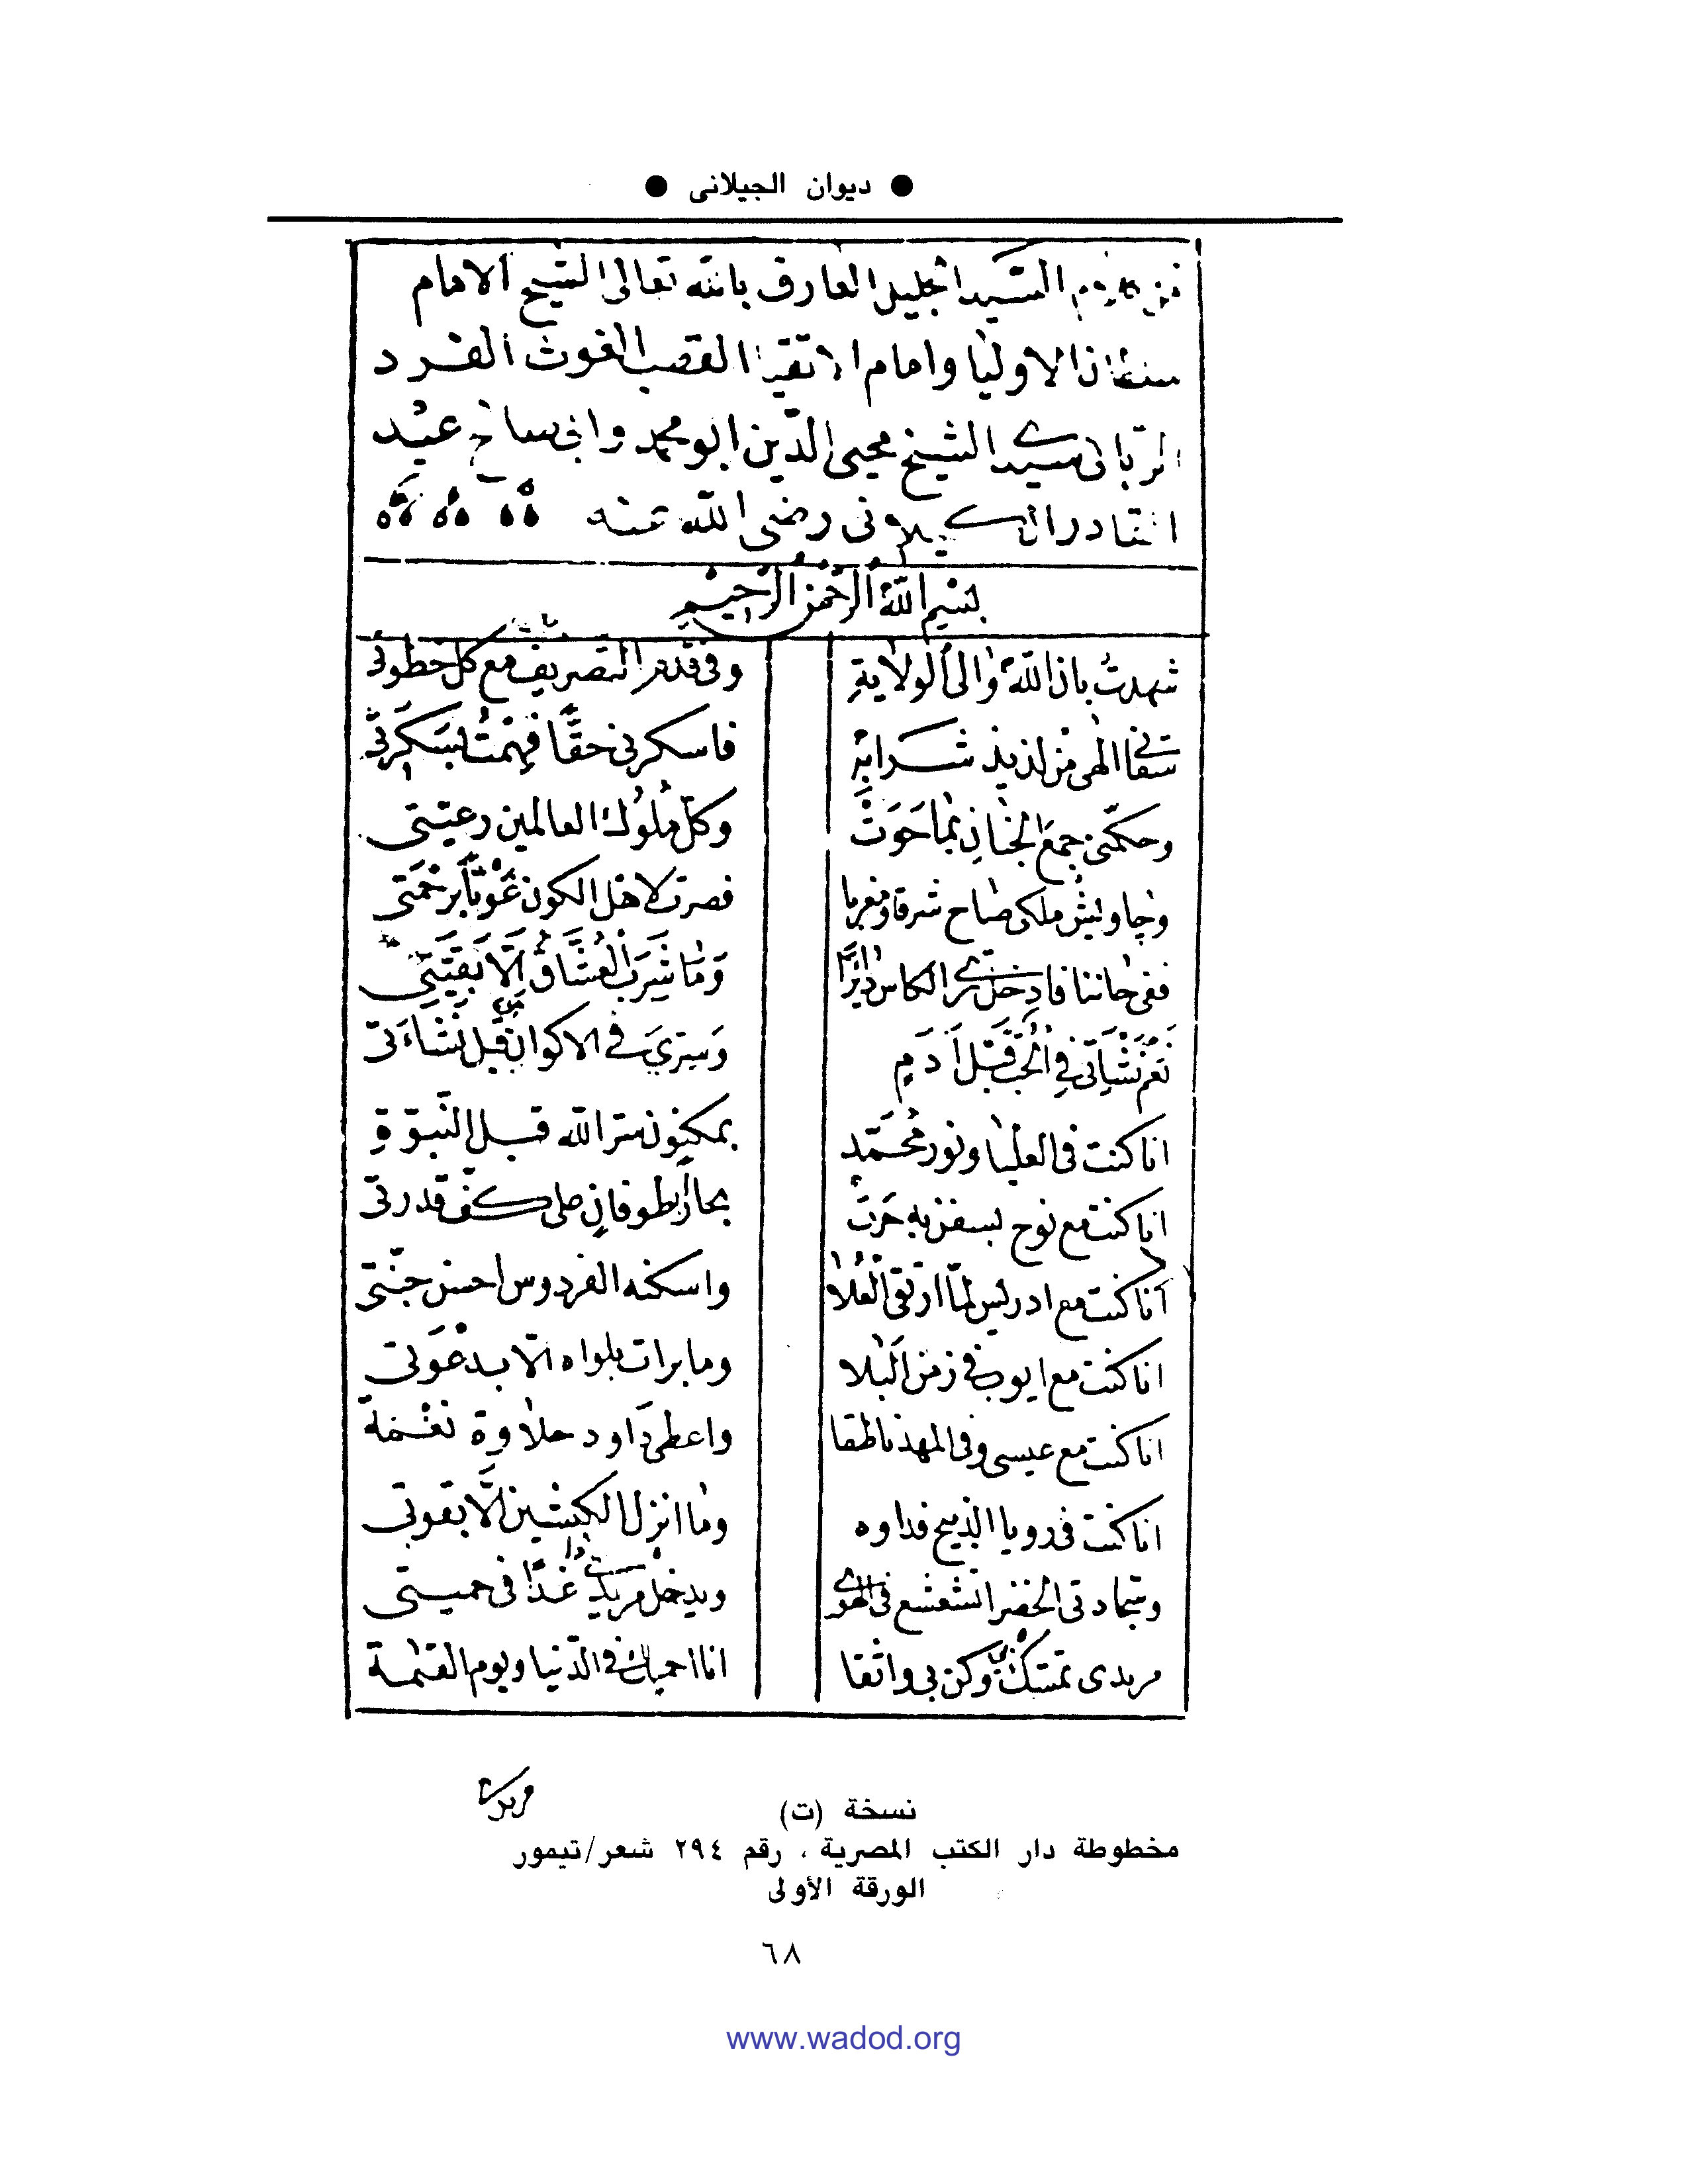 ● ديوان الجيلانى ●
من كلام السيد الجليل العارف بالله تعالى الشيخ الامام
سلطان الاوليا وامام الاتقيا القطب الغوث الفرد
الربانى سيدى الشيخ محيى الدين ابو محمد وابى صالح عبد
القادر الكيلانى رضى الله عنه
بسم الله الرحمن الرحيم
شهدت بان الله والى الولاية وفى قدم التصريف مع كل خطوتى
سقانى الهى من لذيذ شرابه فاسكرنى حقا فهمت بسكرتى
وحكمنى جمع الجنان بما حوت وكل ملوك العالمين رعيتى
وجاويش ملكى صاح شرقا ومغربا فصرت لاهل الكون غوثا برحمتى
ففى حاننا فادخل ترى الكاس دائرا وما شرب العشاق الا بقيتى
نعم نشاتى فى الحب قبل ادم وسرى فى الاكوان من قبل نشاءتى
انا كنت فى العليا ونور محمد بمكنون سر الله قبل النبوة
انا كنت مع نوح بسفن به جرت بحار طوفان على كف قدرتى
انا كنت مع ادريس لما ارتقى العلا واسكنه الفردوس احسن جنتى
انا كنت مع ايوب فى زمن البلا وما برات بلواه الا بدعوتى
انا كنت مع عيسى وفى المهد ناطقا واعطى داود حلاوة نغمة
انا كنت فى رويا الذبيح فداوه وما انزل الكبشين الا بقوتى
وسجادتى الخضرا تشعشع فى الهوى ويدخل مريدى غدا فى حميتى
مريدى تمسك بى وكن بى واثقا انا احميك فى الدنيا ويوم القيمة
مريدى
نسخة (ت)
مخطوطة دار الكتب المصرية ، رقم ٢٩٤ شعر/تيمور
الورقة الأولى
٦٨
www.wadod.org